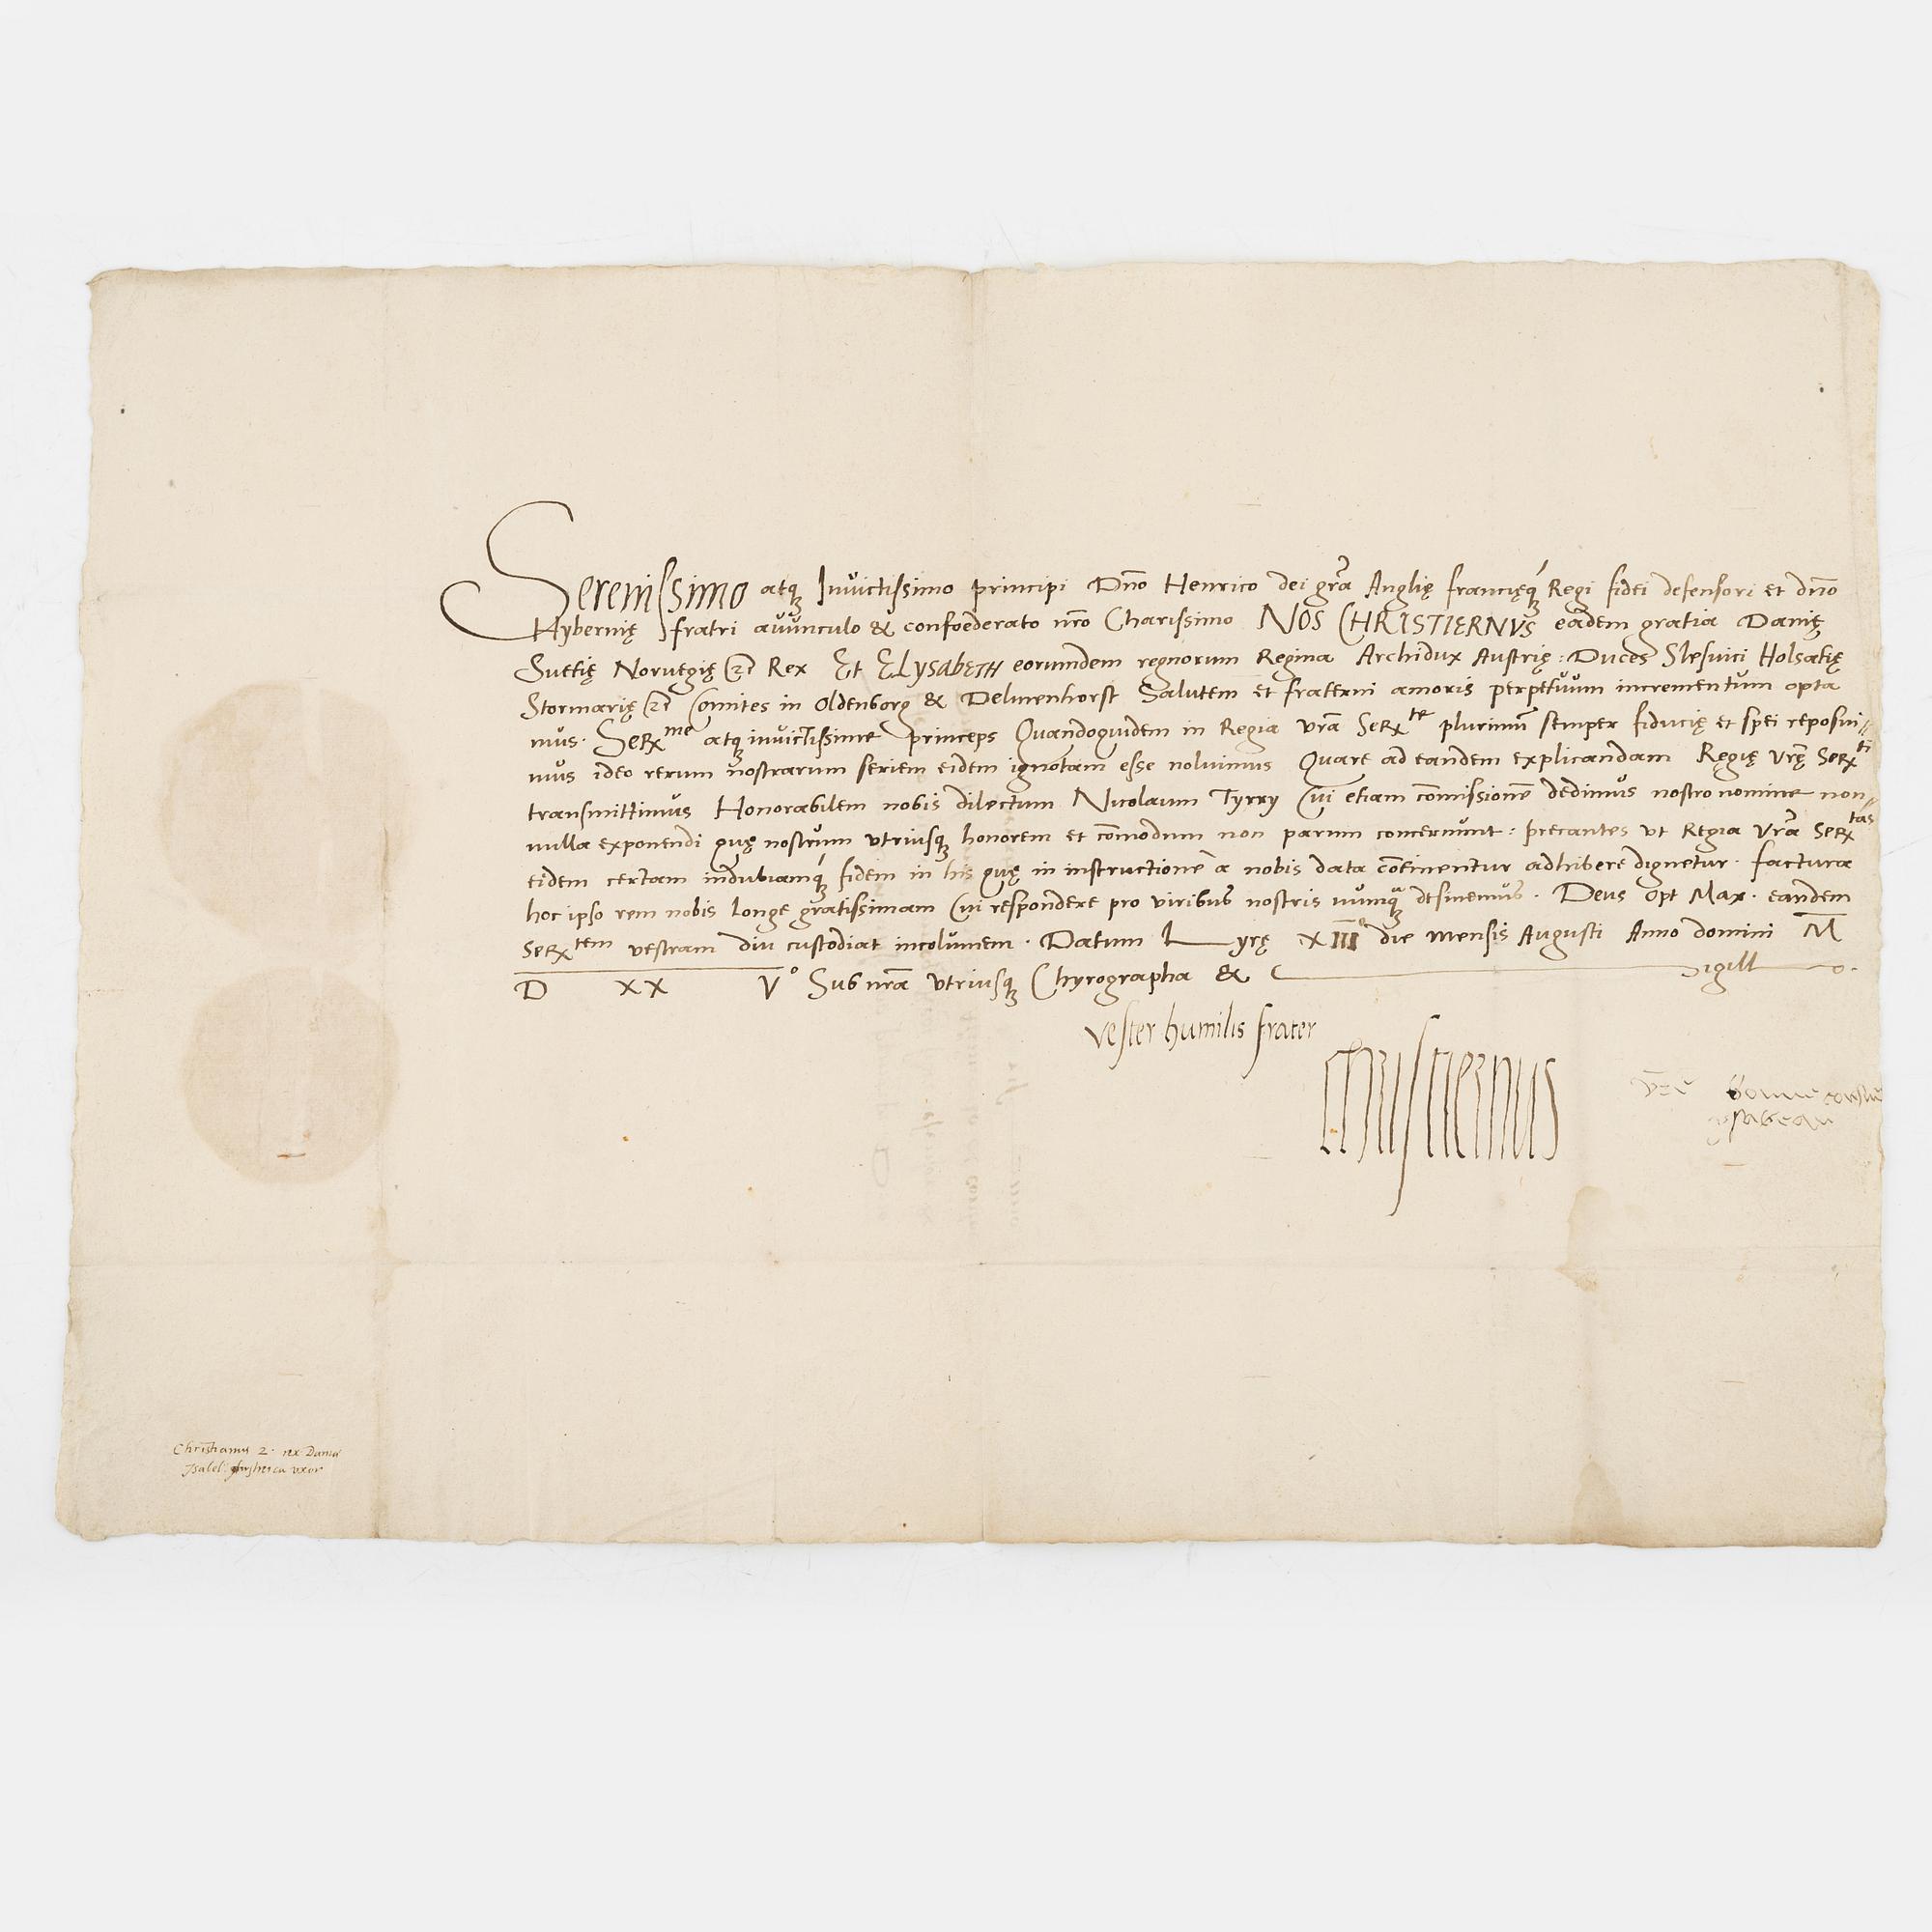 Serenissimo atqꝫ Invictissimo principi Dn̄o Henrico dei gr̄a Anglię francięqꝫ Regi fidei defensori et dn̄o
Hybernię fratri avvnculo & confoederato nr̄o Charissimo NOS CHRISTIERNVS eadem gratia Danię
Suetię Norvegię ⁊c̄ Rex Et Elysabeth eorumdem regnorum Regina Archidux Austrię: Duces Slesuici Holsatię
Stormarię ⁊c̄ Comites in Oldenborg & Delmenhorst Salutem et fraterni amoris perpetuum incrementum opta
mus. Serx^me atqꝫ invictissime princeps Quandoquidem in Regia vr̄a Serx^te plurimū semper fiducię et spei reposui//
mus ideo rerum nostrarum seriem eidem ignotam esse noluimus Quare ad eandem explicandam Regię vrę̄ Serx^ti
transmittimus Honorabilem nobis dilectum Nicolaum Tyrry Cui etiam com̄issionē dedimus nostro nomine non//
nulla exponendi quę nostrum vtriusqꝫ honorem et com̄odum non parum concernunt: precantes vt Regia vr̄a Serx^tas
eidem certam indubiamqꝫ fidem in his quę in instructione a nobis data cōtinentur adhibere dignetur. factura
hoc ipso rem nobis longe gratissimam Cui respondere pro viribus nostris nunqꝫ desinemus. Deus Opt Max. eandem
Serx^tem vestram diu custodiat incolumem. Datum Lyrę XIII^e die mensis Augusti Anno domini M
D XX V° Sub nr̄a vtriusqꝫ Chyrographa & Sigillo.
Vester humilis frater
Christiernus
bonne
ysabeau
Christianus 2. rex Daniæ
Isabel: uxor